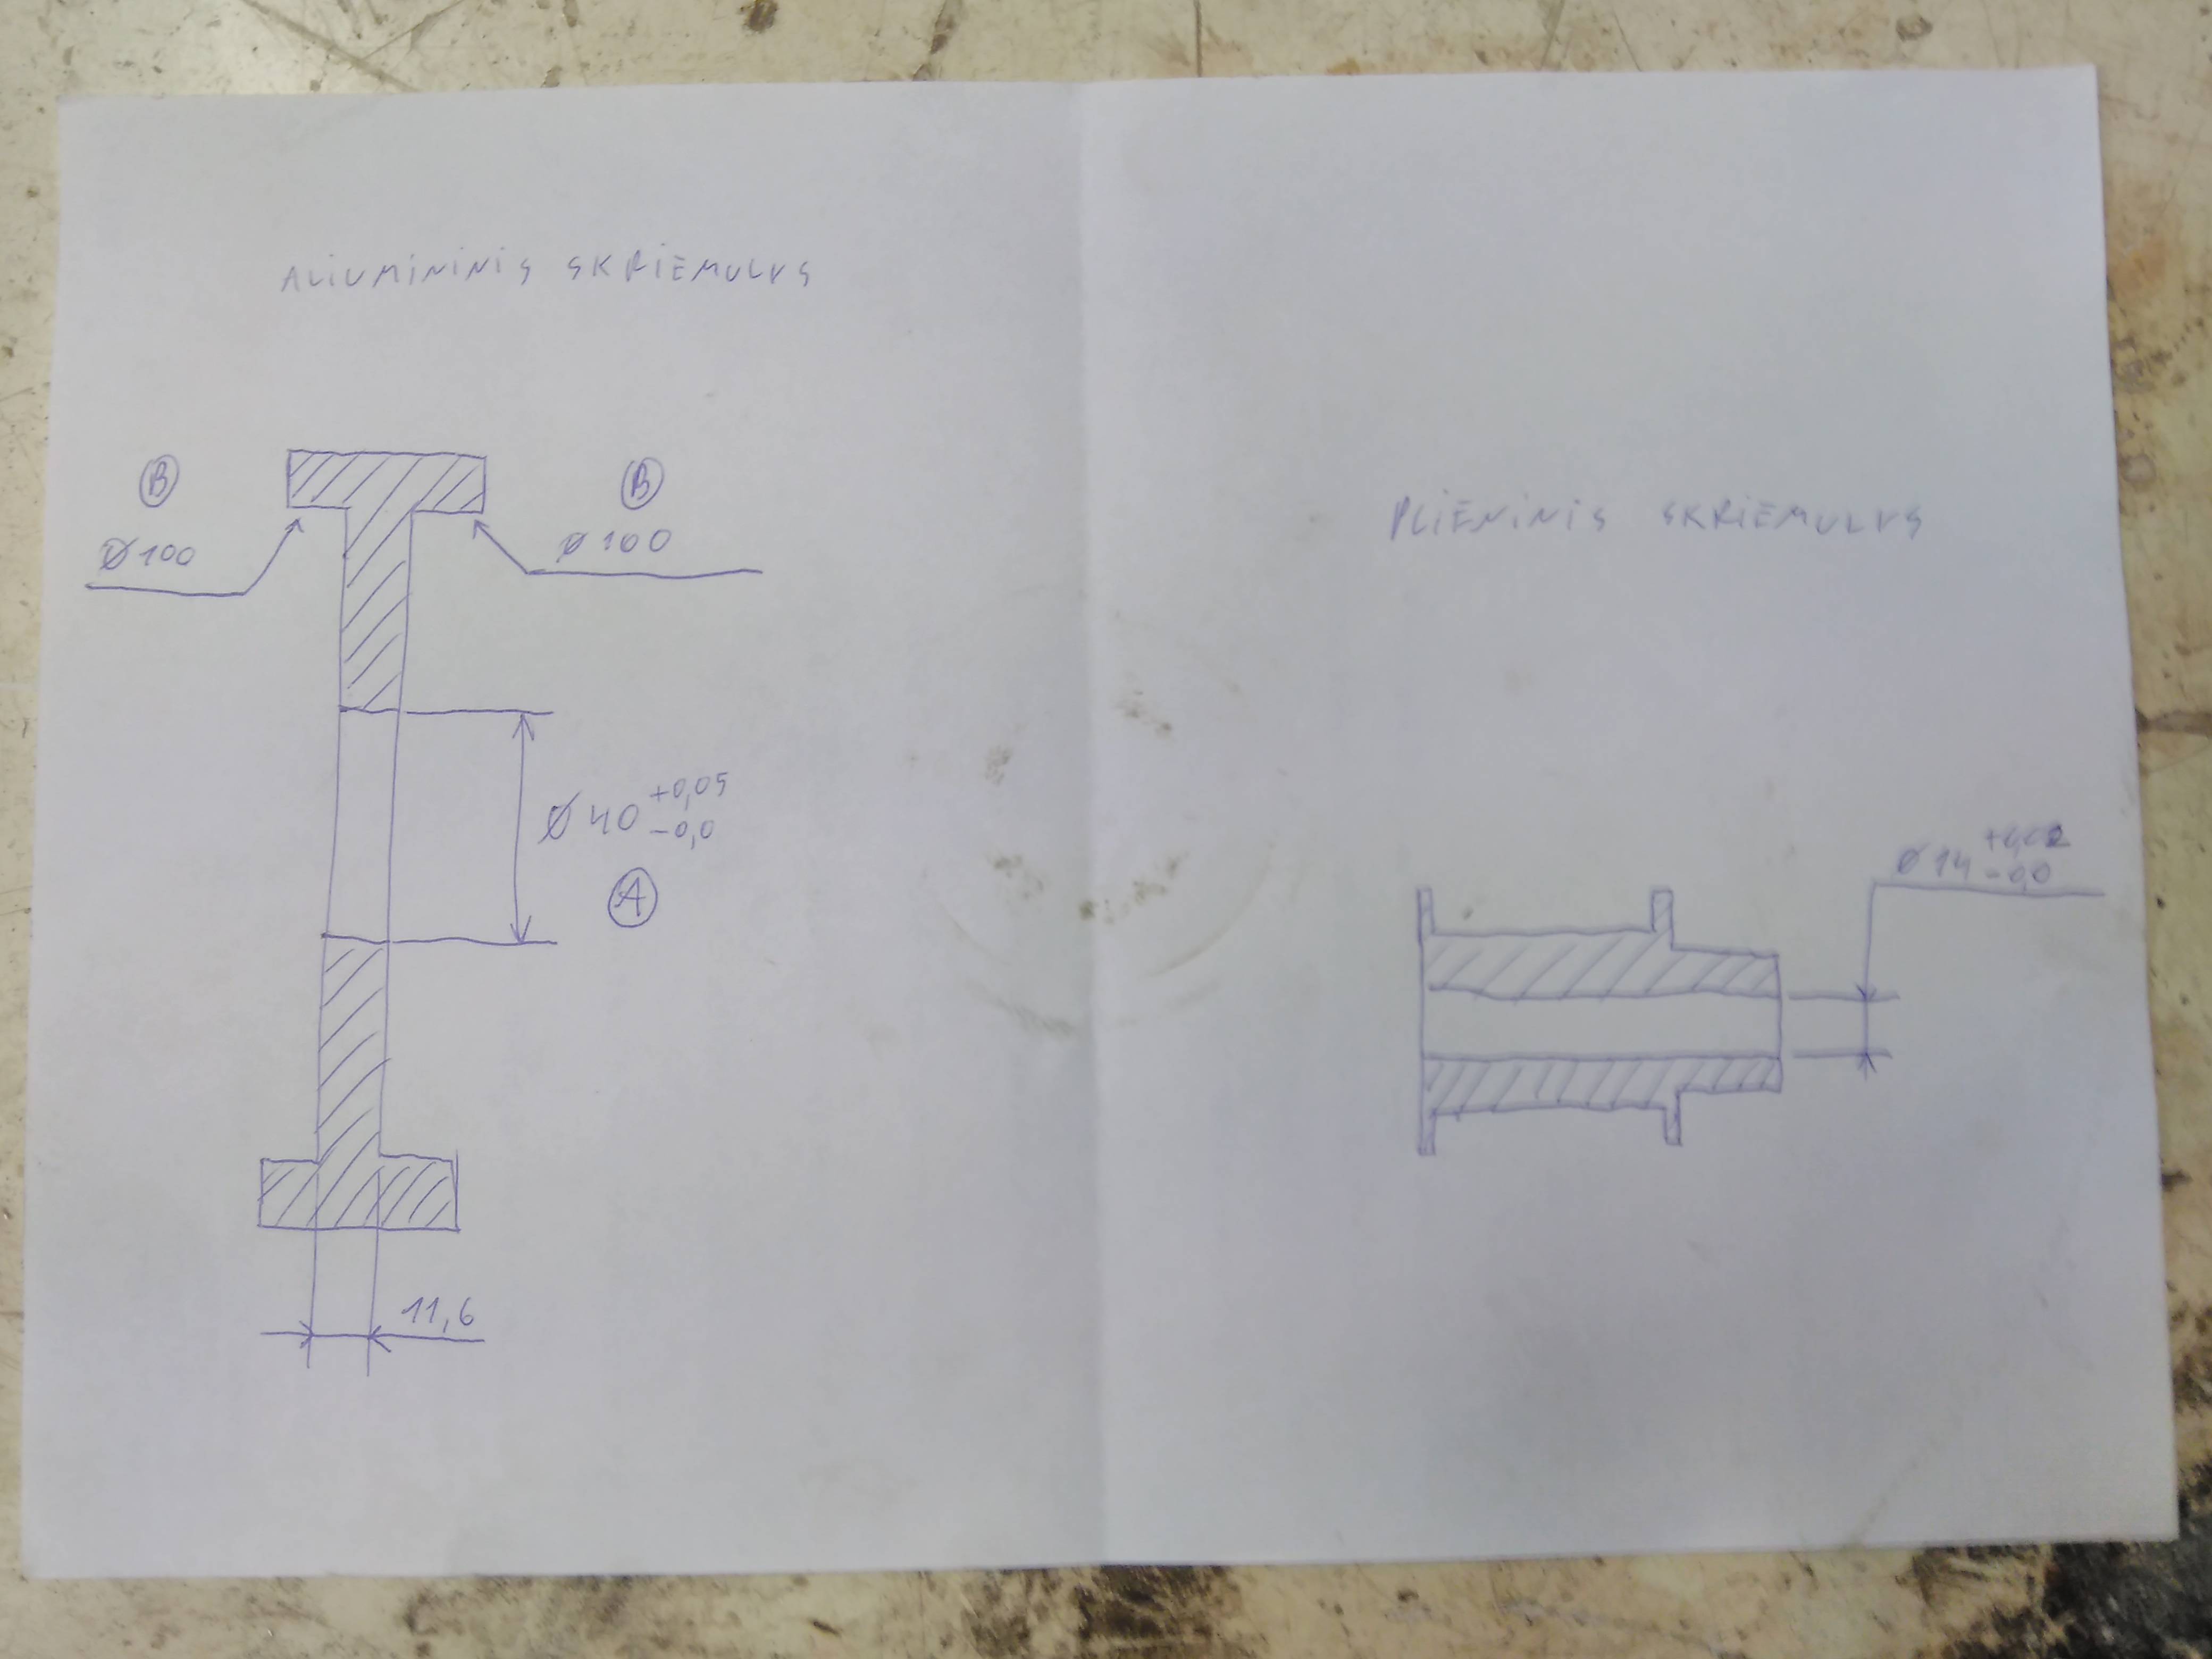 ALIUMININIS SKRIEMULYS
B
Ø100
B
Ø100
Ø40 +0,05
-0,0
A
11,6
PLIENINIS SKRIEMULYS
Ø14
-0,0